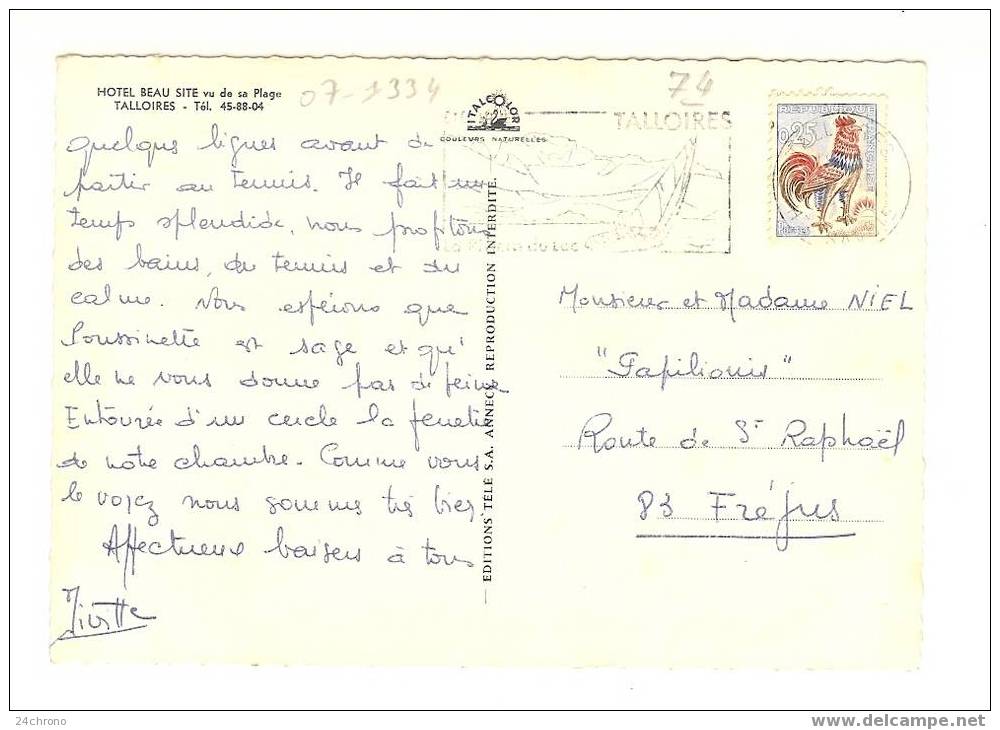 HOTEL BEAU SITE vu de sa Plage
TALLOIRES - Tél. 45-88-04
07-1334
74
ITALCOLOR
COULEURS NATURELLES
TALLOIRES
du Lac
REPUBLIQUE
FRANÇAISE
0,25
Quelques lignes avant de
partir au tennis. Il fait un
temps splendide, nous profitons
des bains, du tennis et du
calme. Nous espérons que
Poussinette est sage et qu'
elle ne vous donne pas de peine
Entourée d'un cercle la fenêtre
de notre chambre. Comme vous
le voyez nous sommes très bien.
Affectueux baisers à tous
— EDITIONS TÉLÉ S.A. ANNECY. REPRODUCTION INTERDITE.
Monsieur et Madame NIEL
"Papilionis"
Route de St Raphaël
83 Fréjus
24chrono
www.delcampe.net